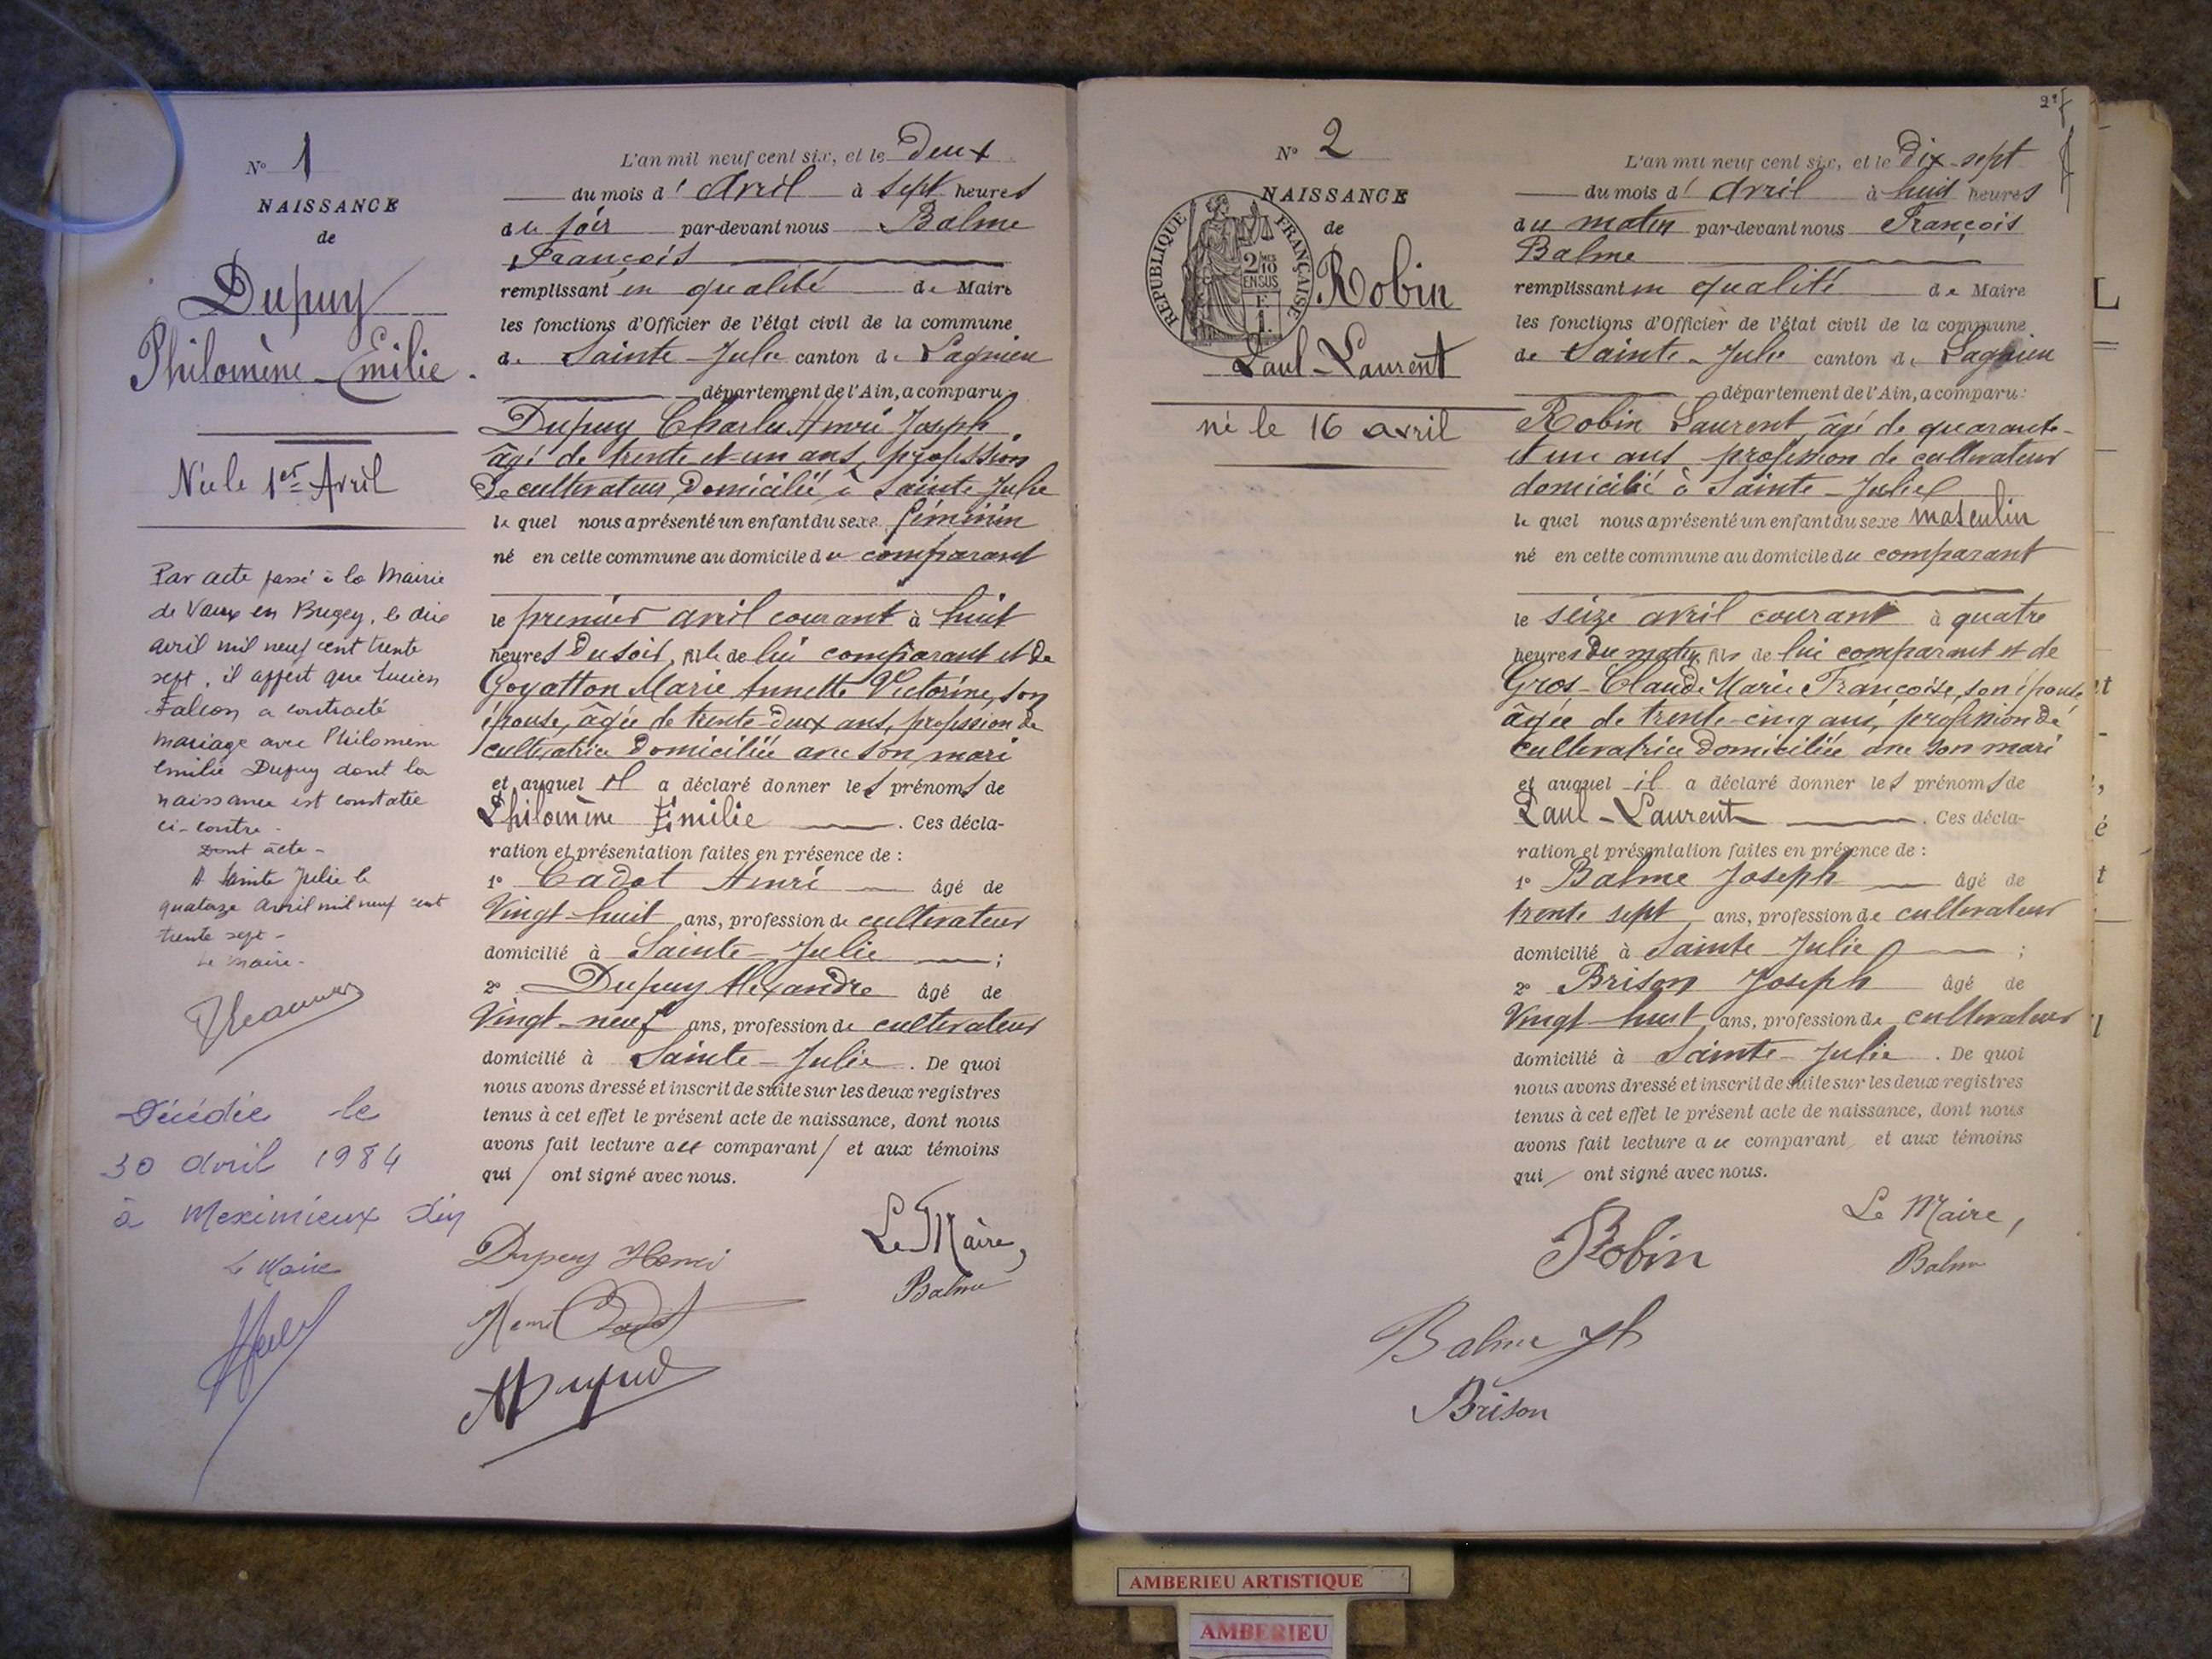 N° 1
NAISSANCE
de
Dupuy
Philomène-Emilie.
Née le 1er Avril
Par acte passé à la Mairie
de Vaux en Bugey, le dix
avril mil neuf cent trente
sept, il appert que Lucien
Falcon a contracté
mariage avec Philomène
Emilie Dupuy dont la
naissance est constatée
ci-contre.
Dont acte -
A Sainte Julie le
quatorze avril mil neuf cent
trente sept -
Le Maire -
Décédée le
30 avril 1984
à Meximieux Ain
Le Maire
L'an mil neuf cent six, et le Deux
du mois d' Avril à sept heures
du soir par-devant nous Balme
François
remplissant en qualité de Maire
les fonctions d'Officier de l'état civil de la commune
de Sainte-Julie canton de Lagnieu
département de l'Ain, a comparu:
Dupuy Charles Henri Joseph
âgé de trente-et-un ans, profession
de cultivateur domicilié à Sainte Julie
lequel nous a présenté un enfant du sexe féminin
né en cette commune au domicile du comparant
le premier avril courant à huit
heures du soir, fille de lui comparant et de
Goyatton Marie Annette Victorine, son
épouse, âgée de trente-deux ans, profession de
cultivatrice domiciliée avec son mari
et auquel il a déclaré donner les prénoms de
Philomène Emilie . Ces décla-
ration et présentation faites en présence de :
1° Cadot Henri âgé de
Vingt-huit ans, profession de cultivateur
domicilié à Sainte-Julie ;
2° Dupuy Alexandre âgé de
Vingt-neuf ans, profession de cultivateur
domicilié à Sainte-Julie . De quoi
nous avons dressé et inscrit de suite sur les deux registres
tenus à cet effet le présent acte de naissance, dont nous
avons fait lecture au comparant et aux témoins
qui ont signé avec nous.
Le Maire,
Dupuy Henri
Balme
Henri Cadot
ADupuy
2
N° 2
NAISSANCE
de
REPUBLIQUE FRANÇAISE
2/10 EN SUS
F.
1.
Robin
Paul-Laurent
né le 16 avril
L'an mil neuf cent six, et le Dix-sept
du mois d' Avril à huit heures
du matin par-devant nous François
Balme
remplissant en qualité de Maire
les fonctions d'Officier de l'état civil de la commune
de Sainte-Julie canton de Lagnieu
département de l'Ain, a comparu:
Robin Laurent, âgé de quarante-
et un ans profession de cultivateur
domicilié à Sainte-Julie
lequel nous a présenté un enfant du sexe masculin
né en cette commune au domicile du comparant
le seize avril courant à quatre
heures du matin fils de lui comparant et de
Gros-Claude Marie Françoise, son épouse,
âgée de trente-cinq ans, profession de
cultivatrice domiciliée avec son mari
et auquel il a déclaré donner les prénoms de
Paul-Laurent . Ces décla-
ration et présentation faites en présence de :
1° Balme Joseph âgé de
trente sept ans, profession de cultivateur
domicilié à Sainte Julie ;
2° Brison Joseph âgé de
Vingt-huit ans, profession de cultivateur
domicilié à Sainte-Julie . De quoi
nous avons dressé et inscrit de suite sur les deux registres
tenus à cet effet le présent acte de naissance, dont nous
avons fait lecture au comparant et aux témoins
qui ont signé avec nous.
Le Maire,
Robin
Balme
Balme Jh
Brison
AMBERIEU ARTISTIQUE
AMBERIEU